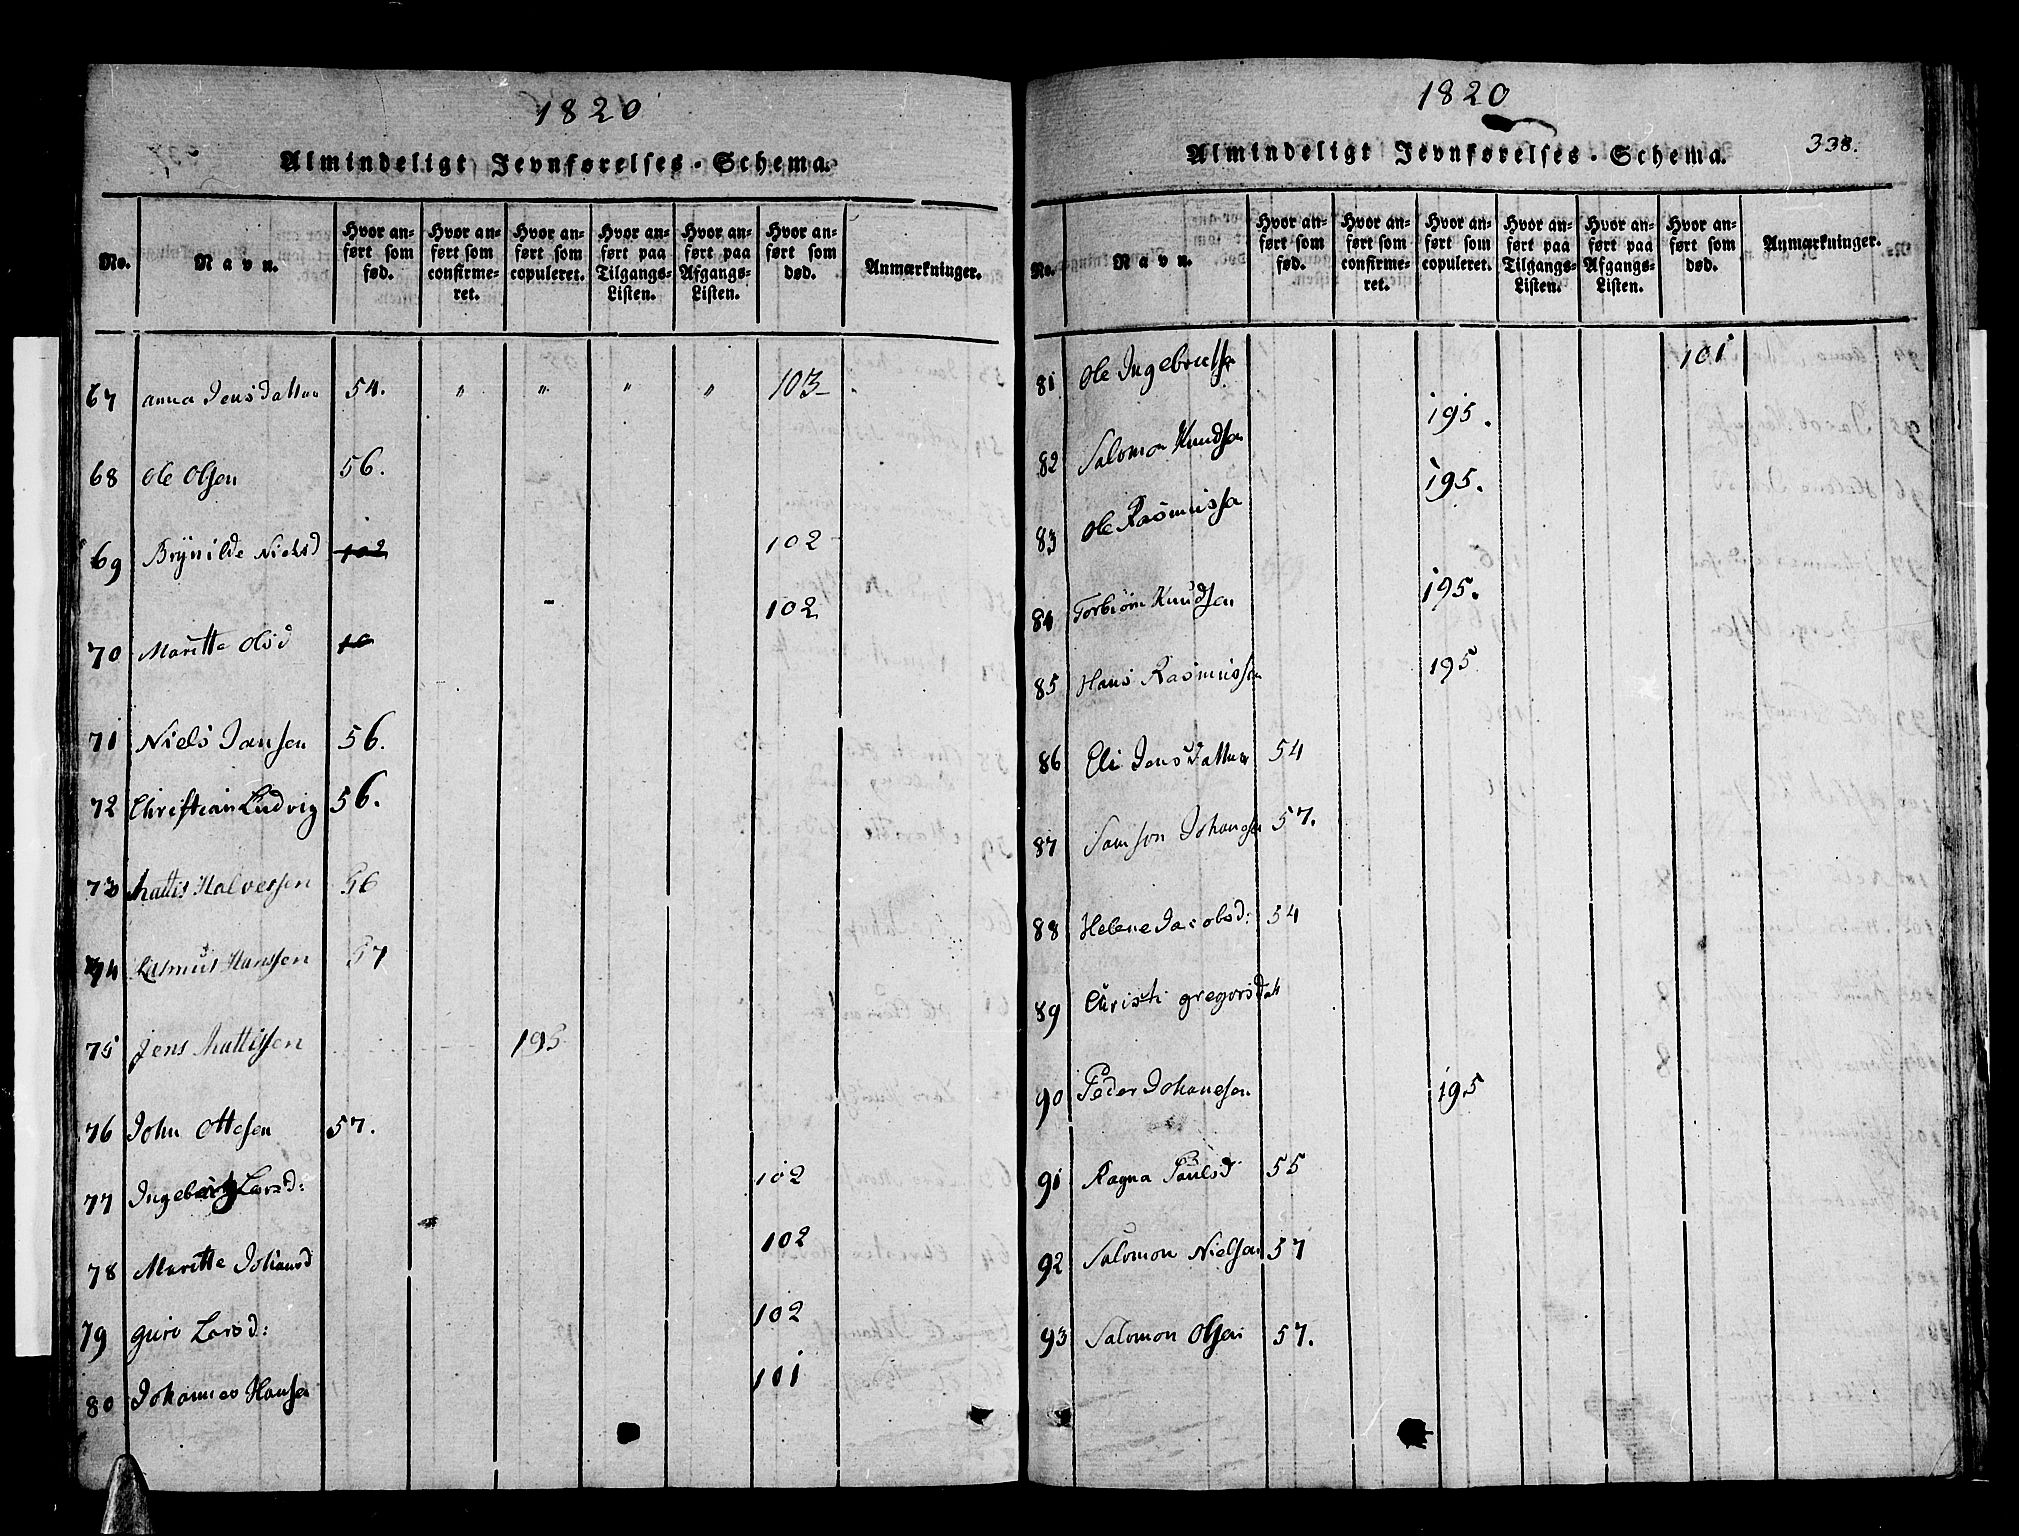 1820
Almindeligt Jevnførelses-Schema.
No.
Navn.
Hvor anført som fød.
Hvor anført som confirmeret.
Hvor anført som copuleret.
Hvor anført paa Tilgangs-Listen.
Hvor anført paa Afgangs-Listen.
Hvor anført som død.
Anmærkninger.
67 anna Jensdatter 54. " " " " 103
68 Ole Olsen 56.
69 Brynilde Nielsd 102 102
70 Maritte Olsd 10 102
71 Niels Jansen 56.
72 Christian Ludvig 56.
73 Mattis Halvorsen 56
74 Rasmus Hanssen 57
75 Jens Mattissen 195
76 John Ottesen 57.
77 Ingeborg Larsd: 102
78 Maritte Johansd 102
79 guro Larsd: 102
80 Johannes Hansen 101
1820
338.
Almindeligt Jevnførelses-Schema.
No.
Navn.
Hvor anført som fød.
Hvor anført som confirmeret.
Hvor anført som copuleret.
Hvor anført paa Tilgangs-Listen.
Hvor anført paa Afgangs-Listen.
Hvor anført som død.
Anmærkninger.
81 Ole Ingebretsen 101
82 Salomon Knudsen 195.
83 Ole Rasmussen 195.
84 Torbiørn Knudsen 195.
85 Hans Rasmussen 195
86 Eli Jensdatter 54
87 Samson Johansen 57.
88 Helene Jacobsd: 54
89 Christi gregorsdatt
90 Peder Johanesen 195
91 Ragna Paulsd 55
92 Salomon Nielsen 57
93 Salomon Olsen 57.